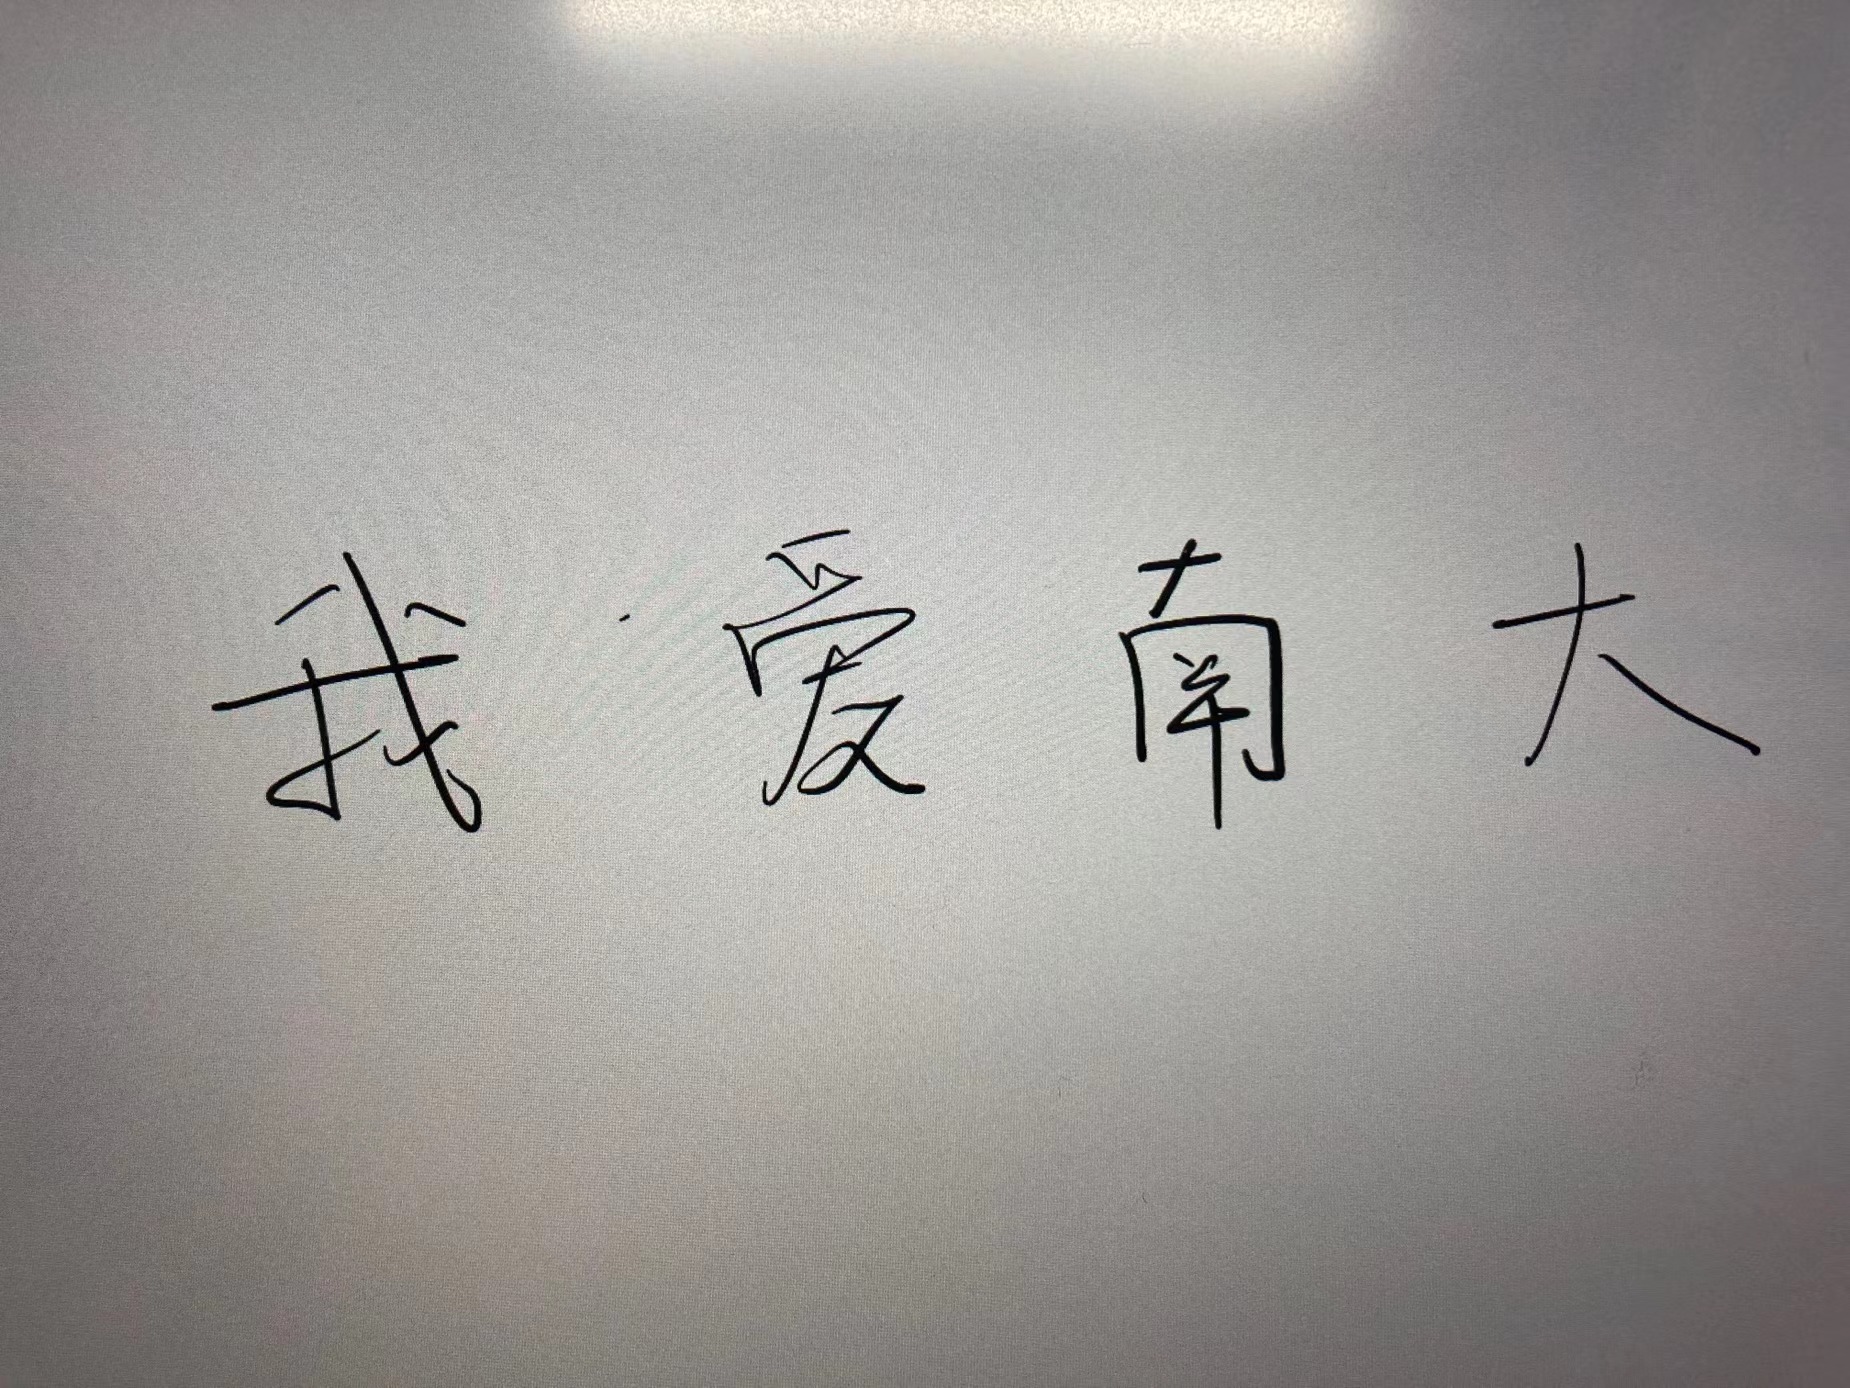 我爱南大